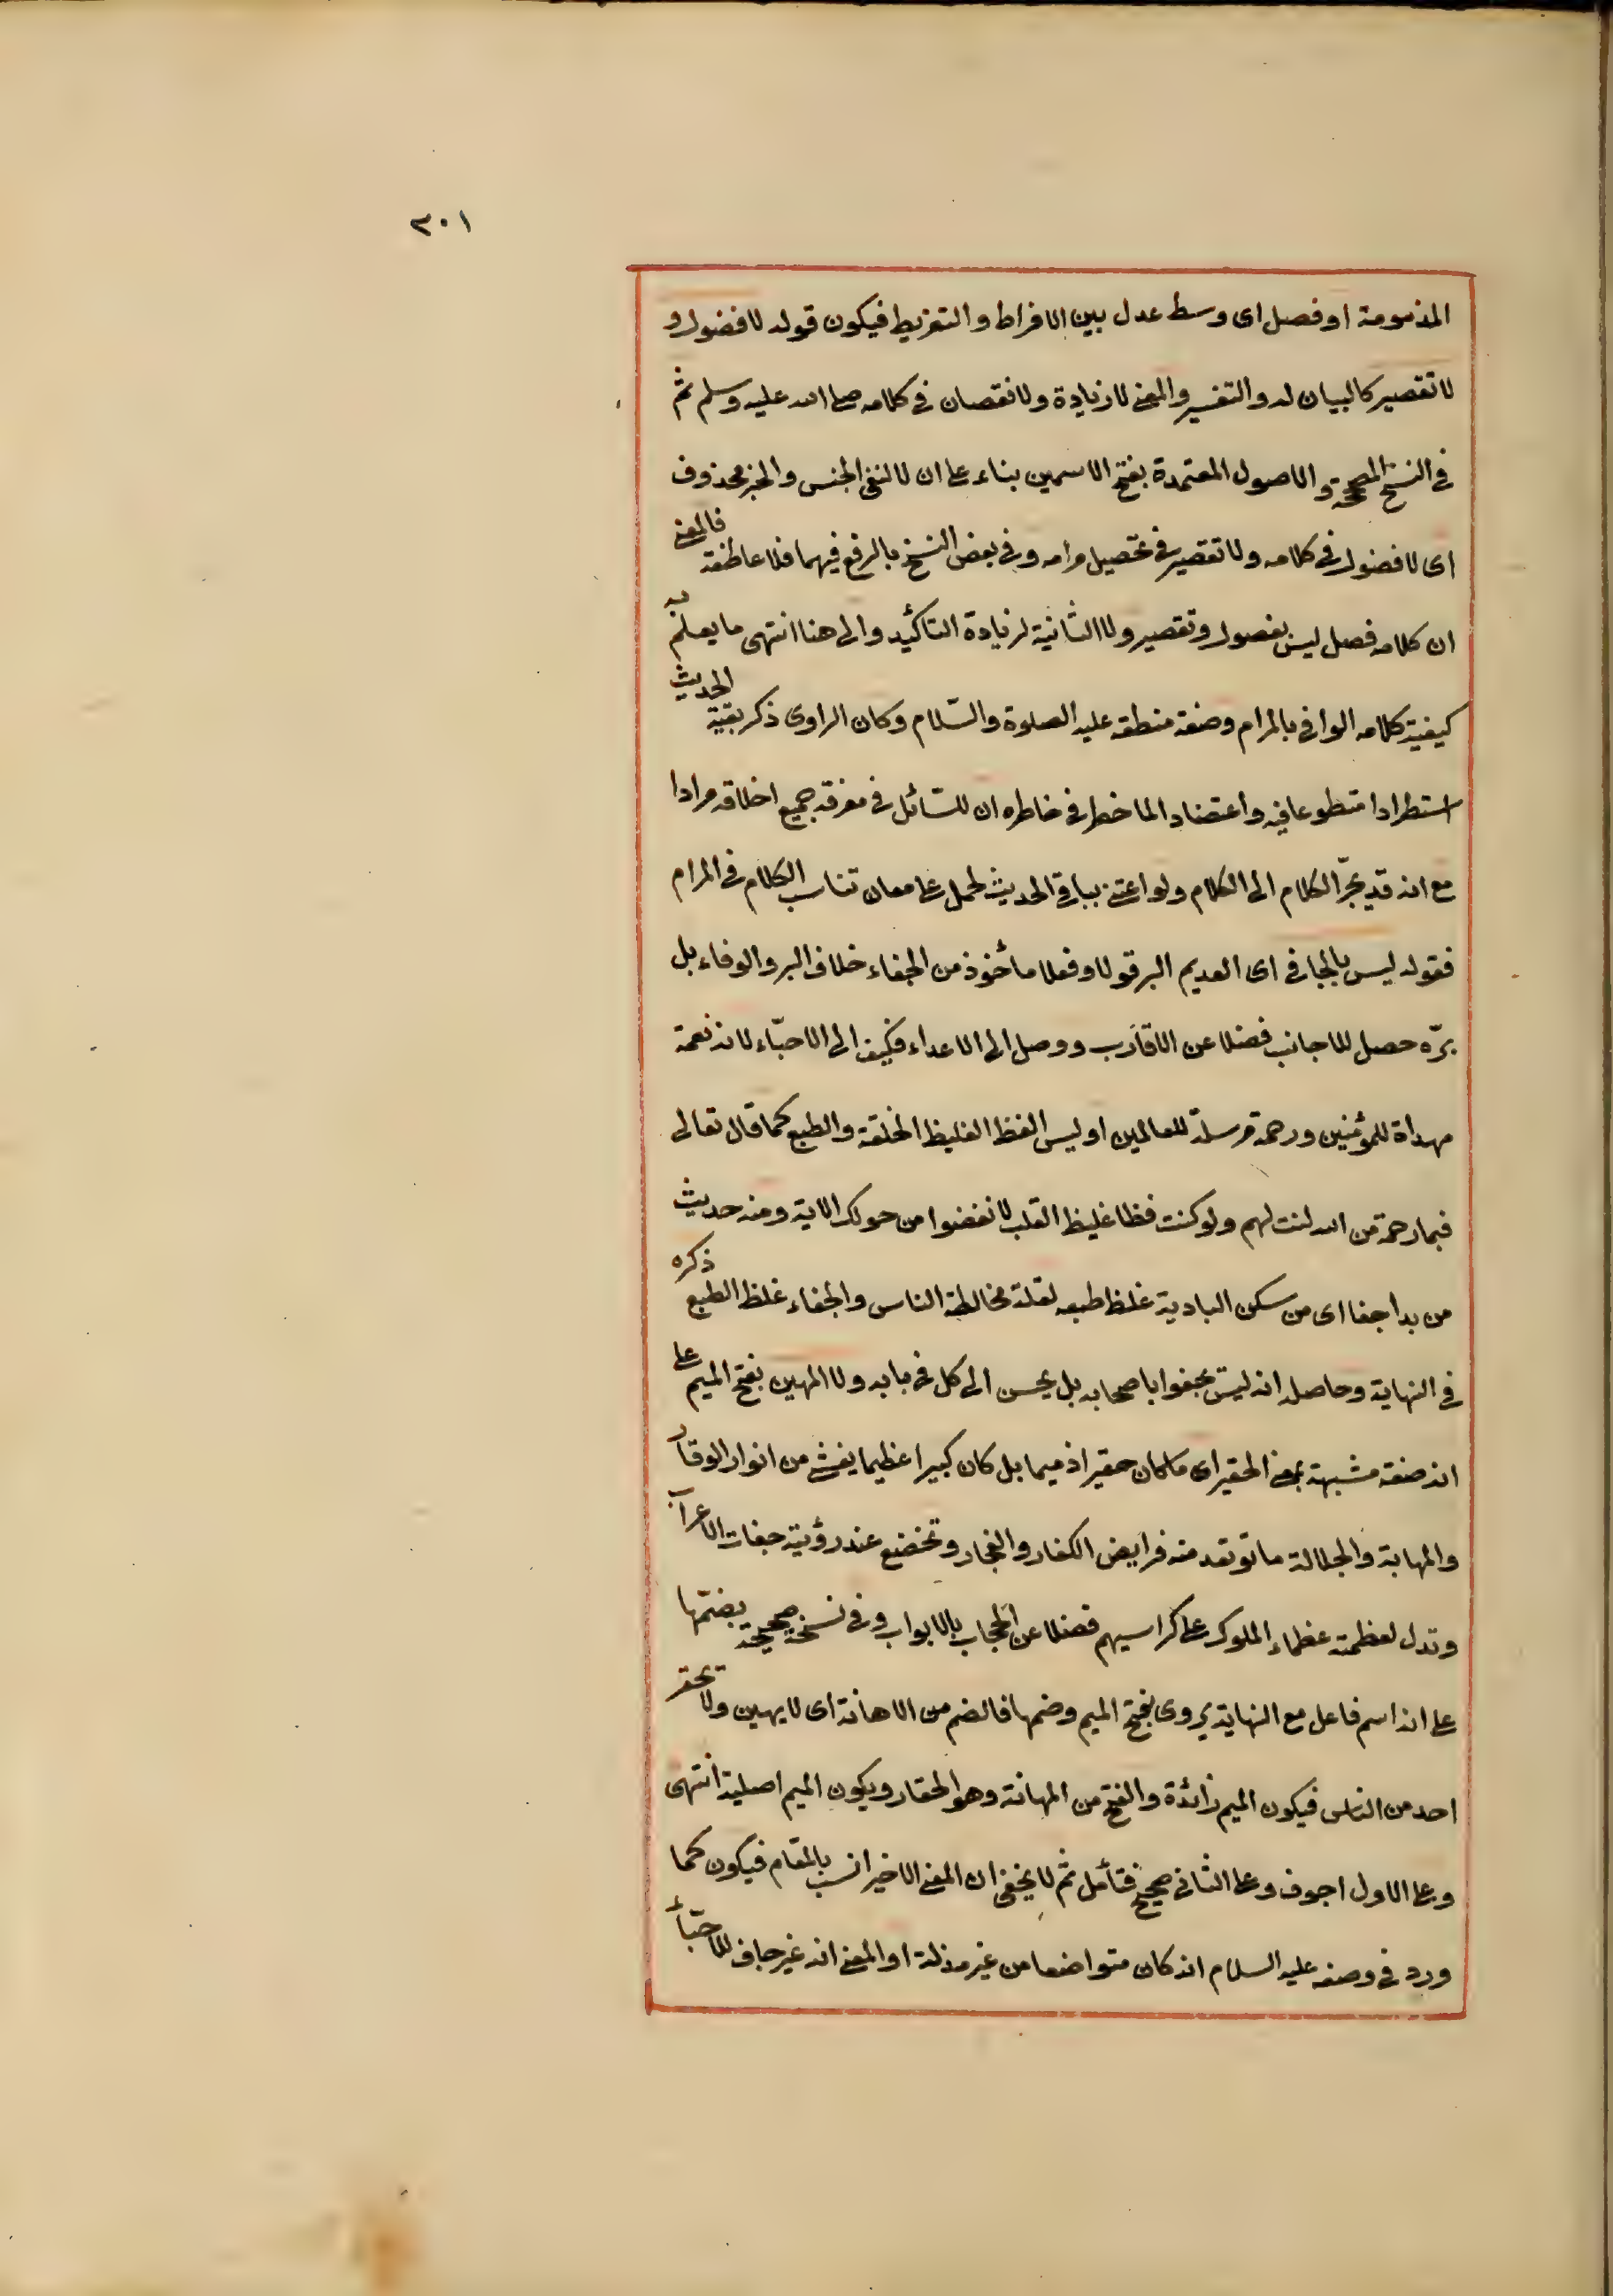 ٢٠١
المذمومة او فصل اى وسط عدل بين الافراط والتفريط فيكون قوله لا فضول و
لا تقصير كالبيان له والتفسير والمعنى لا زيادة ولا نقصان فى كلامه صلى الله عليه وسلم ثم
فى النسخ المصححة والاصول المعتمدة بفتح الاسمين بناء على ان لا لنفى الجنس والخبر محذوف
اى لا فضول فى كلامه ولا تقصير فى تحصيل مرامه وفى بعض النسخ بالرفع فيهما فلا عاطفة فالمعنى
ان كلامه فصل ليس بفصول وتقصير ولا الثانية لزيادة التاكيد والى هنا انتهى ما يعلم به
كيفية كلامه الوافى بالمرام وصفة منطقه عليه الصلوة والسّلام وكان الراوى ذكر بقية الحديث
استطرادا متطوعا فيه واعتضادا لما خطر فى خاطره ان للسّائل فى معرفة جميع اخلاقه مرادا
مع انه قد يجرّ الكلام الى الكلام ولو اعتنى بباقى الحديث لحمل على معان تناسب الكلام فى المرام
فقوله ليس بالجافى اى العديم البر قولا وفعلا مأخوذ من الجفاء خلاف البر والوفاء بل
برّه حصل للاجانب فضلا عن الاقارب ووصل الى الاعداء فكيف الى الاحبّاء لانه نعمة
مهداة للمؤمنين ورحمة مرسلة للعالمين او ليس الفظ الغليظ الخلقة والطبع كما قال تعالى
فبما رحمة من الله لنت لهم ولو كنت فظا غليظ القلب لانفضوا من حولك الاية ومنه حديث
من بدا جفا اى من سكن البادية غلظ طبعه لقلة مخالطة الناس والجفاء غلظ الطبع ذكره
فى النهاية وحاصله انه ليس يجفوا باصحابه بل يحسن الى كل فى بابه ولا المهين بفتح الميم على
انه صفة مشبهة بمعنى الحقير اى ما كان حقيرا ذميما بل كان كبيرا عظيما يغشى من انوار الوقار
والمهابة والجلالة ما توتعد منه فرايض الكفار والفجار وتخضع عند رؤية جفات الاعراب
وتدل لعظمته عظماء الملوك على كراسيهم فضلا عن الحجاب بالابواب وفى نسخة صحيحة بضمّها
على انه اسم فاعل مع النهاية يروى بفتح الميم وضمها فالضم من الاهانة اى لا يهين ولا يحقر
احد من الناس فيكون الميم زائدة والفتح من المهانة وهو الحقار ويكون الميم اصلية انتهى
وعلى الاول اجوف وعلى الثانى صحيح فتأمل ثم لا يخفى ان المعنى الاخير انسب بالمقام فيكون كما
ورد فى وصفه عليه السلام انه كان متواضعا من غير مذلة او المعنى انه غير جاف للاحبّاء